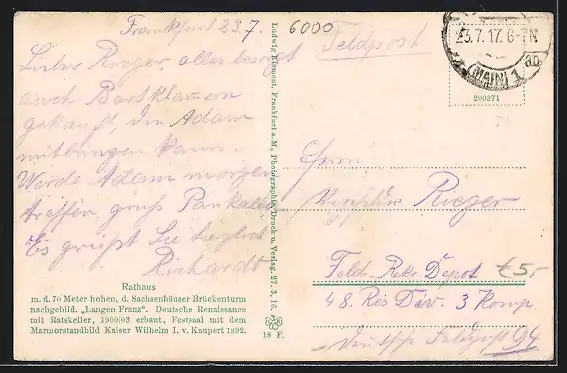 Frankfurt 23.7.
6000
Feldpost
23.7.17. 6-7N
(MAIN) 1
ab
200371
Lieber Rieger, alles besorgt
auch
gekauft, den Adam
mitbringen kann.
Werde Adam morgen
treffen, gruss
Es grüsst Sie
Richardt
Rathaus
m. d. 70 Meter hohen, d. Sachsenhäuser Brückenturm
nachgebild. „Langen Franz“. Deutsche Renaissance
mit Ratskeller, 1900/03 erbaut, Festsaal mit dem
Marmorstandbild Kaiser Wilhelm I. v. Kaupert 1892.
Ludwig Klement, Frankfurt a. M., Photographie, Druck u. Verlag. 27. 3. 16.
18 F.
Herrn
Rieger
Feld-Rekr Depot
€5,-
48. Res Div. 3 Komp
Deutsche Feldpost